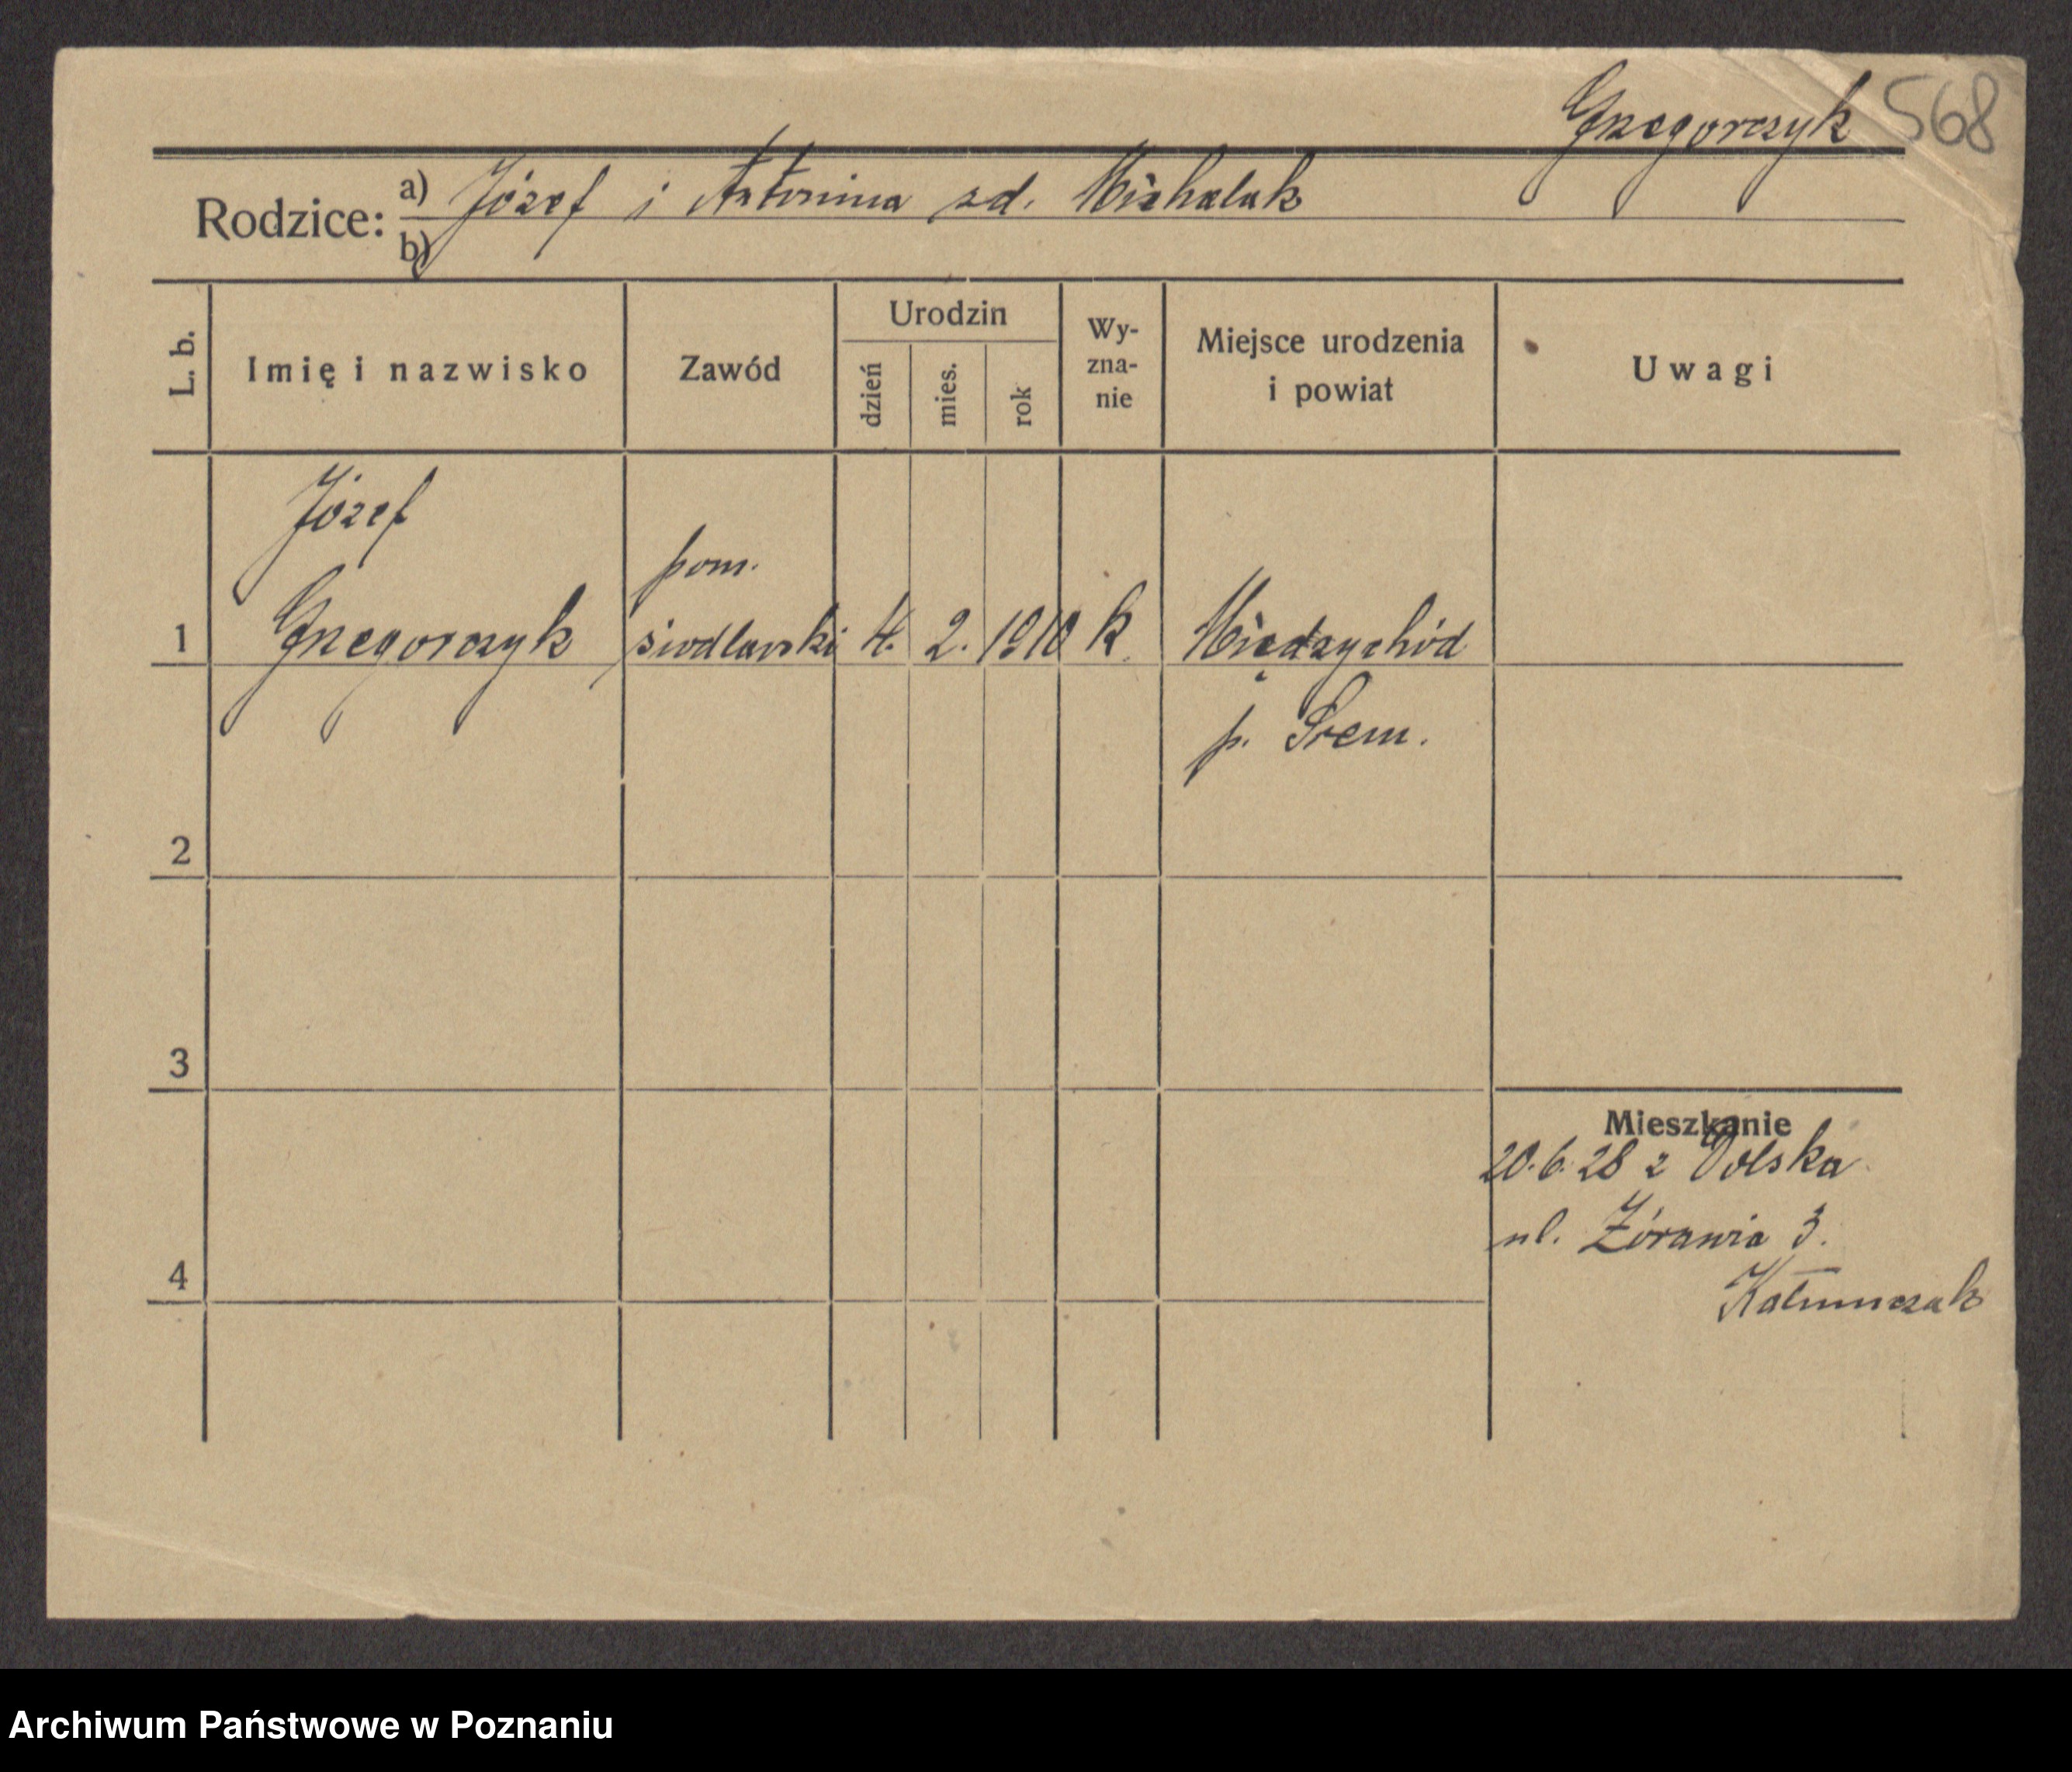 Grzegorczyk 568
Rodzice: a) Józef i Antonina zd. Michalak
b)
L. b. Imię i nazwisko Zawód Urodzin dzień mies. rok Wy-zna-nie Miejsce urodzenia i powiat Uwagi
Józef
pom.
1 Grzegorczyk siodlarski 4. 2. 1910 k. Międzychód
p. Śrem.
2
3
Mieszkanie
20.6.28 z Dolska
ul. Żórawia 3.
4
Archiwum Państwowe w Poznaniu